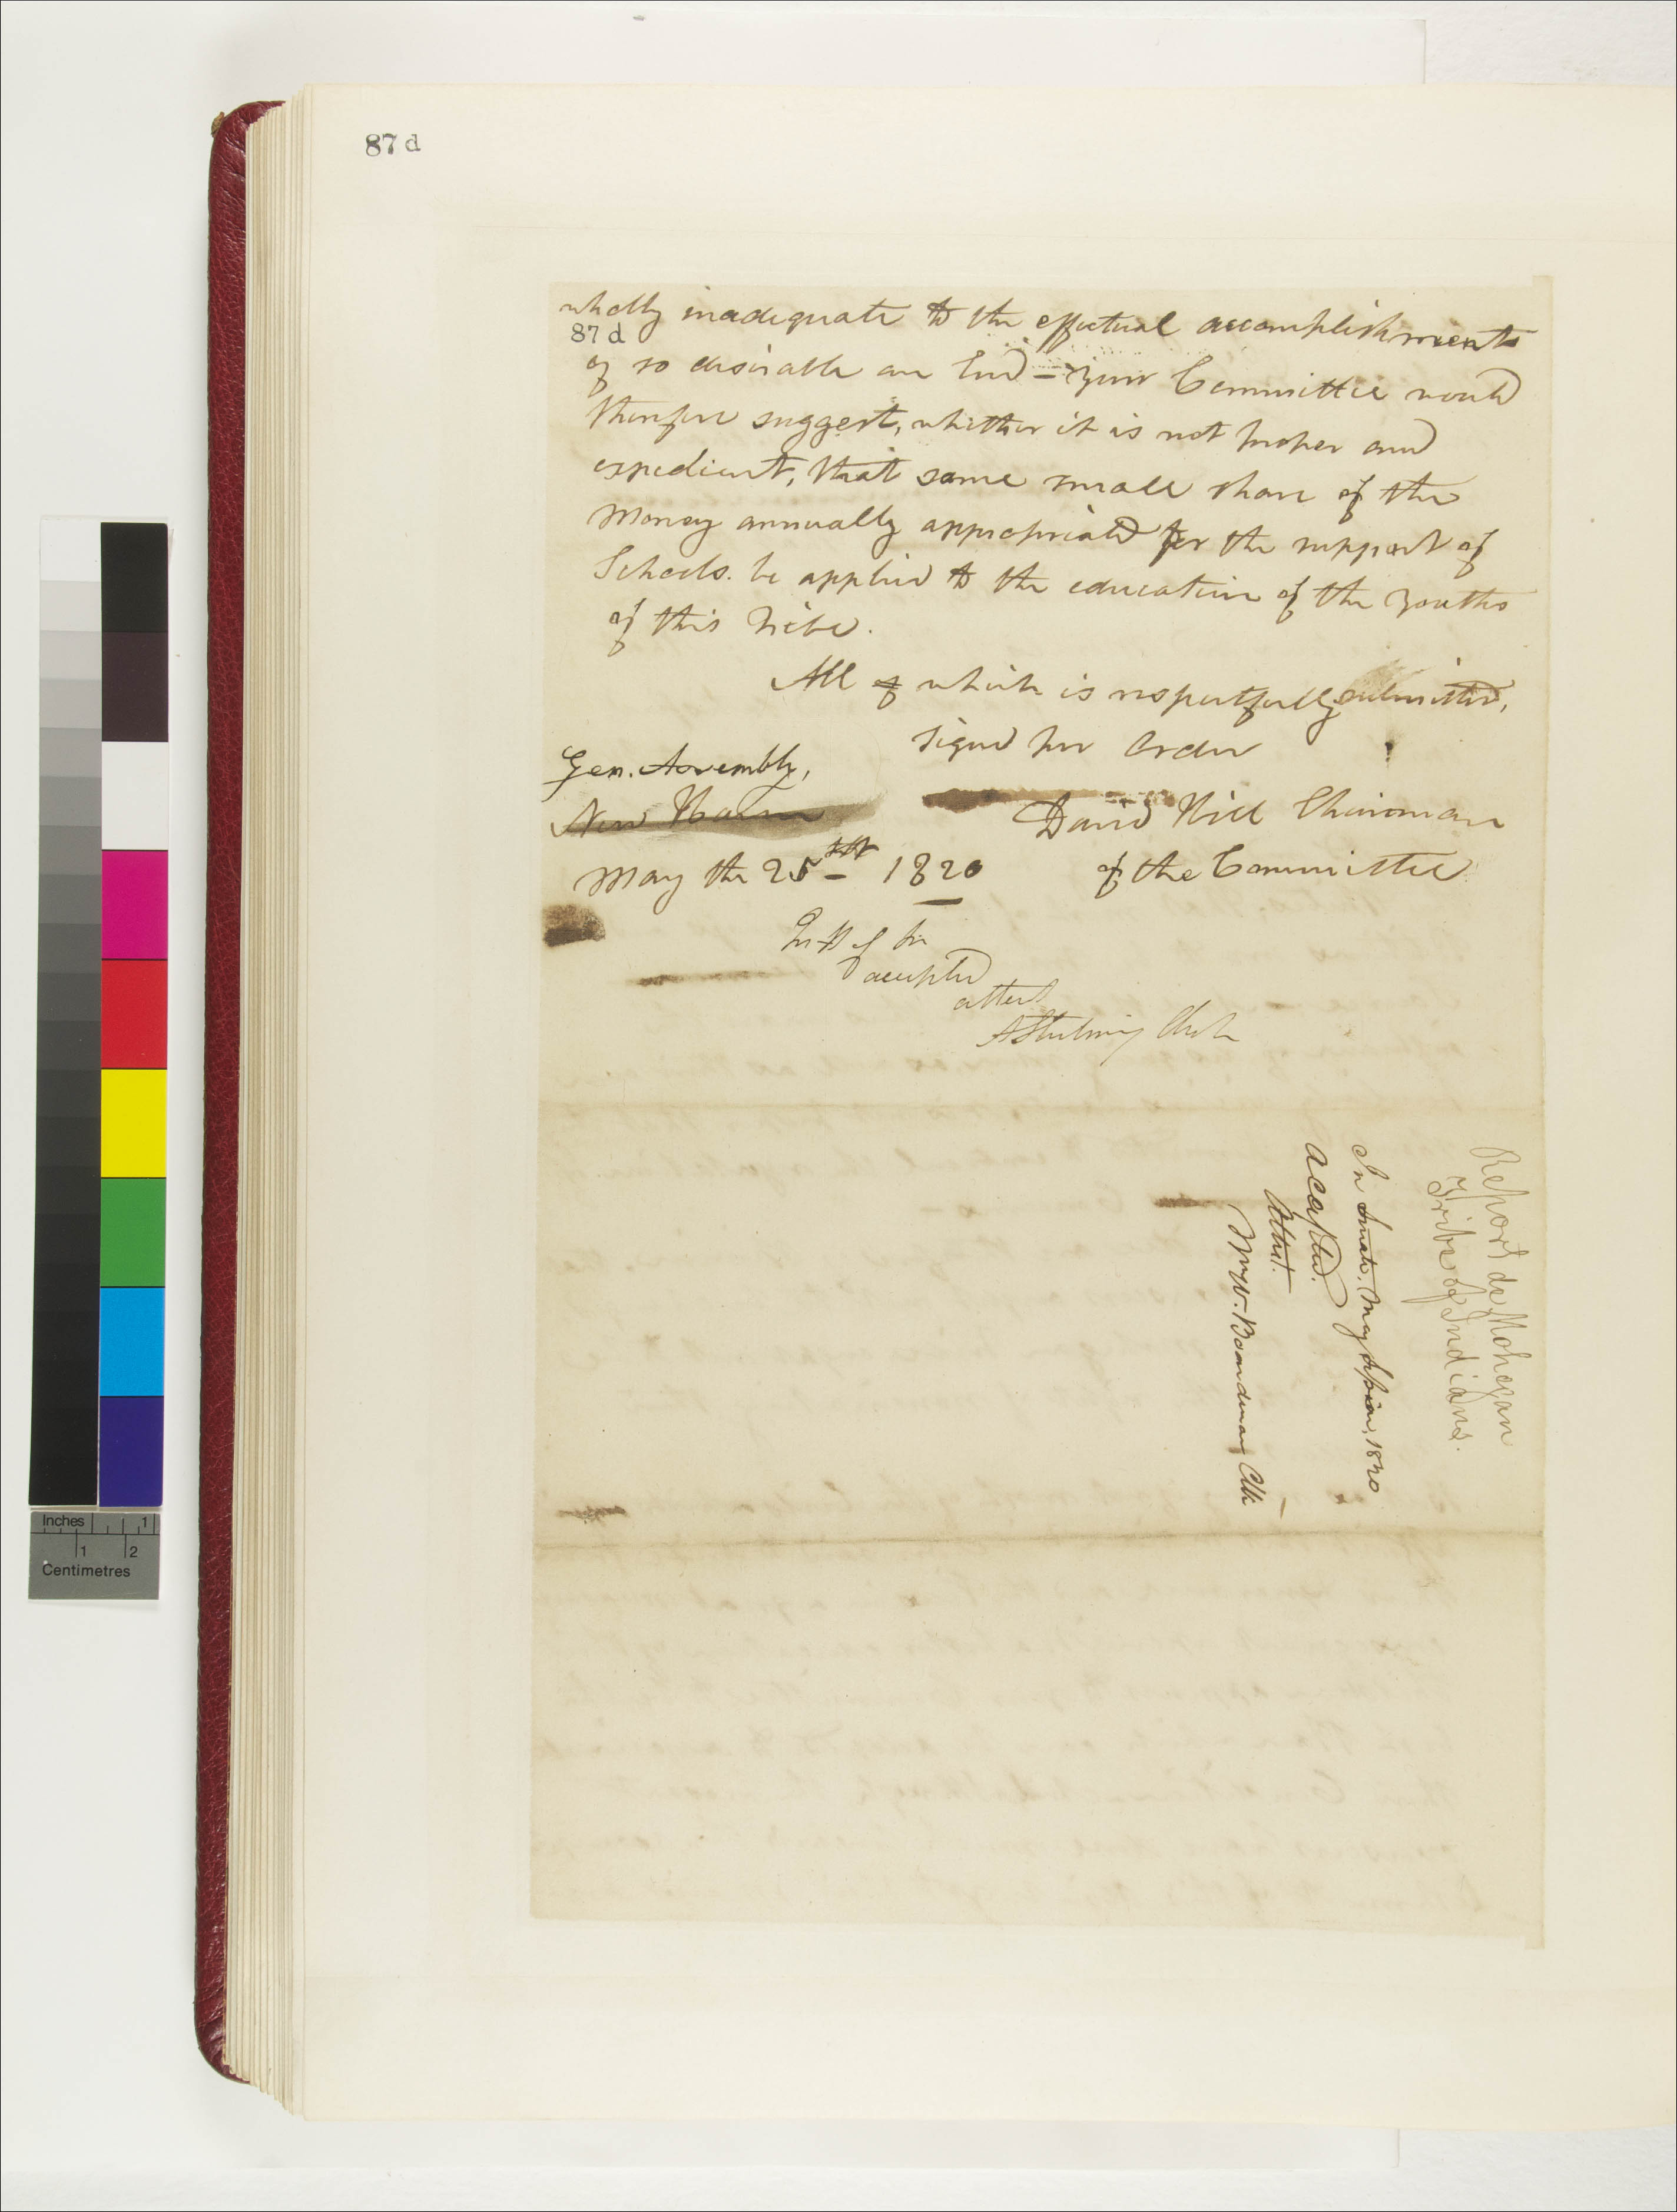 87 d
wholly inadequate to the effectual accomplishment
87 d
of so desirable an End – Your Committee would
therefore suggest, whether it is not proper and
expedient, that some small share of the
Money annually appropriated for the support of
Schools. be applied to the education of the Youths
of this Tribe.
All of which is respectfully submitted,
signed per Order
Gen. Assembly,
New Haven
David Hill Chairman
May the 25th 1820
of the Committee
In H of
accepted
attest
Clerk
Report de Mohegan
Tribe of Indians.
In Senate, May Session, 1820
accepted.
Attest.
Wm W. Boardman Clk
Inches 1
1 2
Centimetres